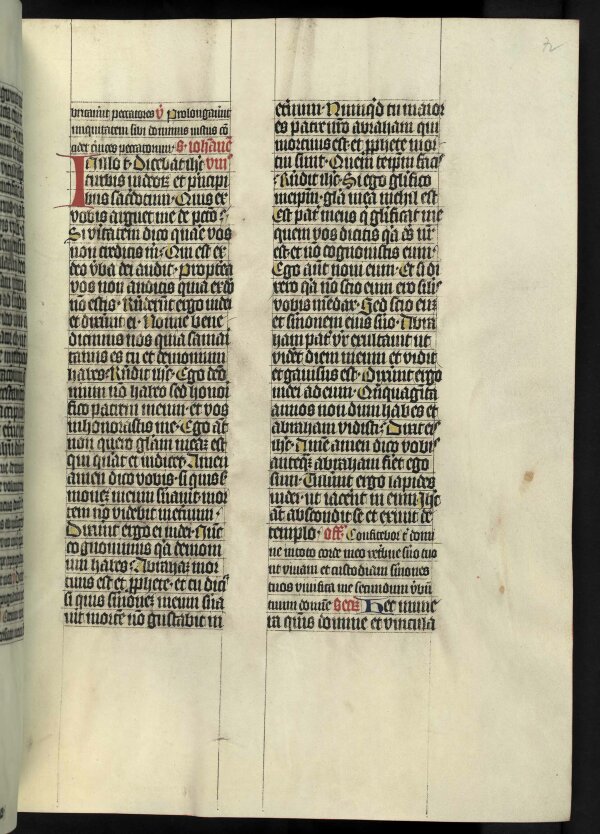 bricauerunt peccatores v̄ Prolongauerūt
iniquitatem sibi dominus iustus cō
cidet ceruices peccatorum· s· iohānē
In illo t̄· Dicebat ihc̄
turbis iudeorꝫ et pͥncipi
bus sacerdotum· Quis ex
vobis arguet me de pccō·
Si vͥtatem dico quare vos
non creditis m· Qui est ex
deo vͤba dei audit· Propterea
vos non auditis quia ex dō
nō estis· Rn̄derūt ergo iudei
et dixerunt ei· Nonne bene
dicimus nos quia samari
tanus es tu et demonium
habes· Rn̄dit ihc̄· Ego demō
nium nō habeo sed honori
fico patrem meum· et vos
inhonorastis me· Ego aūt
non quero glām meā· est
qui querat et iudicet· Amen
amen dico vobis· si quis s͛
monē meum seruauerit· mor
tem nō videbit ineternum·
Dixerunt ergo ei iudei· Nūc
cognouimus qͣ demoni
um habes· Abraham mor
tuus est et ꝓphete· et tu dicis
si quis s͛monē meum serua
uerit mortē nō gustabit in
et͛num· Nunqͥd tu maior
es patre nr̄o abraham qui
mortuus est et ꝓphete mor
tui sunt· Quem teipm̄ facis·
Rn̄dit ihc̄· Si ego glifico
meipm̄· glā mea nichil est·
Est pat͛ meus qͥ glificat me
quem vos dicitis qͣ ds̄ nr̄
est· et nō cognouistis eum·
Ego aūt noui eum· Et si di
xero qͣ nō scio eum ero silis
vobis mendax· Sed scio eū
et sermonem eius s͛uo· Abra
ham pat͛ vr̄ exultauit ut
videret diem meum et vidit
et gauisus est· Dixerūt ergo
iudei ad eum· Qūquaginta
annos non dum habes et
abraham vidisti· Dixit eis
ihc̄· Amē amen dico vobis
anteqͣꝫ abraham fieret ego
sum· Tulerūt ergo lapides
iudei· ut iacerent in eum· Ihc̄
aūt abscondit se et exiuit de
templo· off̄ Confitebor t̄ domi
ne in toto corde meo retͥbue s͛uo tuo
ut viuam et custodiam sermones
tuos viuifica me secundum vͤbū
tuum domine Secͬ Hec mune
ra quīs domine et vincula